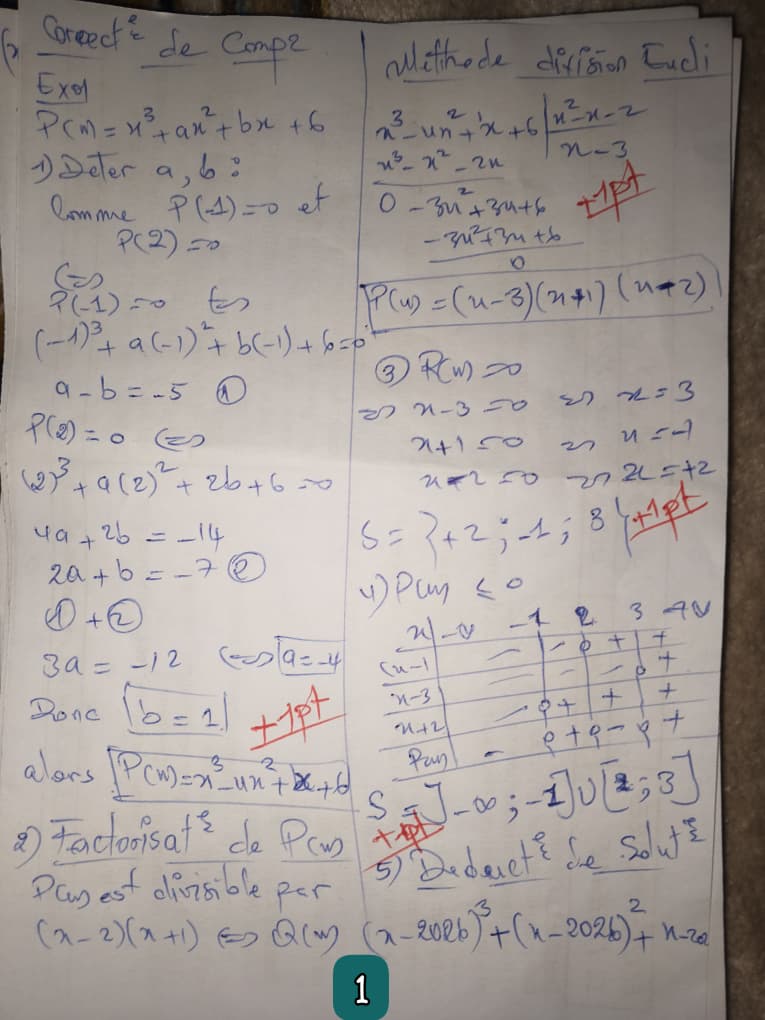 Correct° de Comp2
Exo1
P(x) = x³ + ax² + bx + 6
1) Deter a, b :
Comme P(-1) = 0 et
P(2) = 0
⇔
P(-1) = 0 ⇔
(-1)³ + a(-1)² + b(-1) + 6 = 0
a - b = -5 ①
P(2) = 0 ⇔
(2)³ + a(2)² + 2b + 6 = 0
4a + 2b = -14
2a + b = -7 ②
① + ②
3a = -12 ⇔ a = -4
Donc b = 1 +1pt
alors P(x) = x³ - 4x² + x + 6
2) Factorisat° de P(x)
P(x) est divisible par
(x-2)(x+1) ⇔ Q(x)
Méthode division Eucli
x³ - 4x² + x + 6 | x² - x - 2
x³ - x² - 2x | x - 3
0 - 3x² + 3x + 6 +1pt
-3x² + 3x + 6
0
P(x) = (x-3)(x+1)(x-2)
③ P(x) = 0
⇔ x - 3 = 0 ⇔ x = 3
x + 1 = 0 ⇔ x = -1
x - 2 = 0 ⇔ x = +2
S = {+2 ; -1 ; 3} +1pt
4) P(x) ≤ 0
x | -∞ -1 2 3 +∞
(x-1 | - - 0 + +
x-3 | - - - 0 +
x+2 | - 0 + + +
P(x) | - 0 + 0 - 0 +
S = ]-∞ ; -1] ∪ [2 ; 3]
+1pt
5) Deduct° de Solut°
(x-2026)³ + (x-2026)² + x-20
1